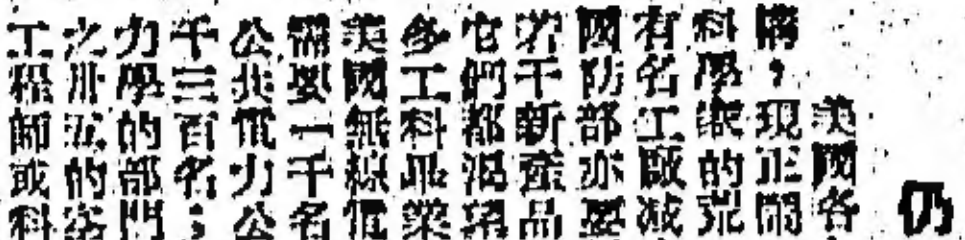 仍
美國各
構，現正鬧
科學家的荒
有名工廠減
國防部亦要
若干新產品
它們都渴望
多工科畢業
美國無線電
需要一千名
公共電力公
千三百名；
力學的部門
之卅五的空
工程師或科